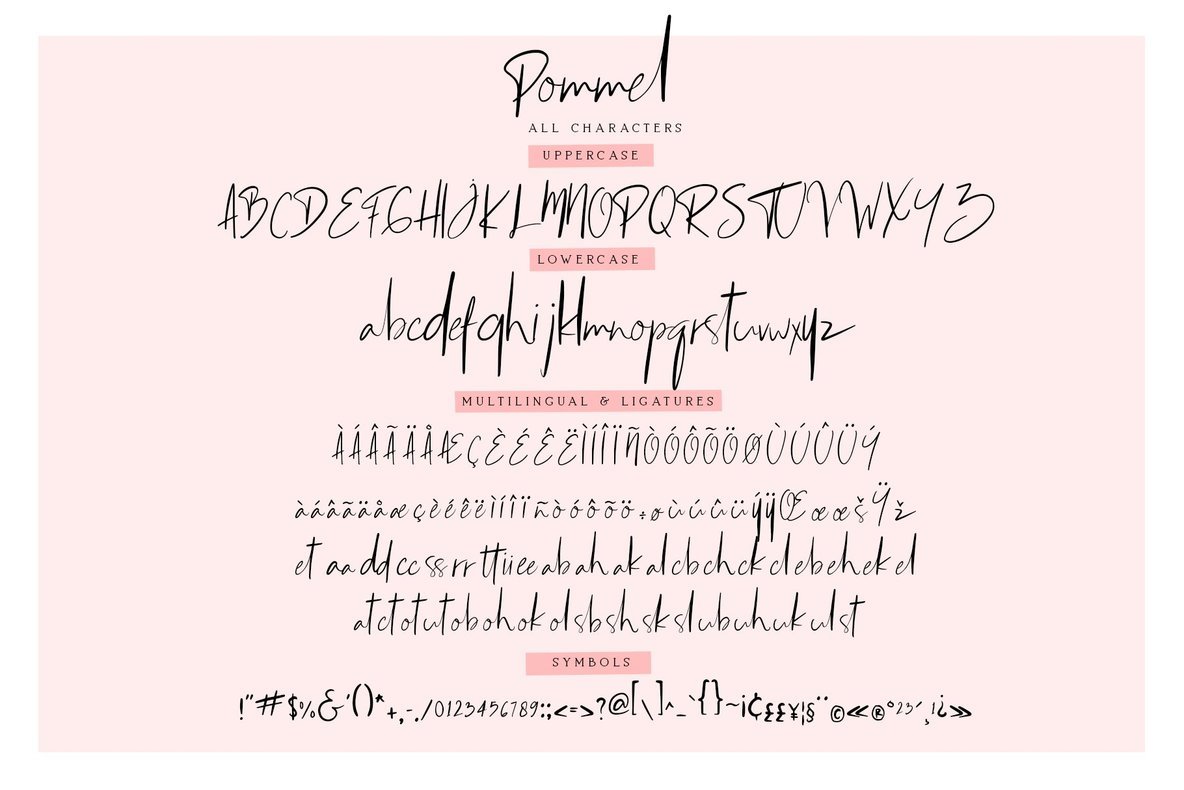 Pommel
ALL CHARACTERS
UPPERCASE
ABCDEFGHIJKLMNOPQRSTUVWXYZ
LOWERCASE
abcdefghijklmnopqrstuvwxyz
MULTILINGUAL & LIGATURES
ÀÁÂÃÄÅÆÇÈÉÊËÌÍÎÏÑÒÓÔÕÖØÙÚÛÜÝ
àáâãäåæçèéêëìíîïñòóôõö÷øùúûüýÿŒœœšŸž
et aa dd cc ss rr tt ii ee ab ah ak al cb ch ck cl eb eh ek el
at ct ot ut ob oh ok ol sb sh sk sl ub uh uk ul st
SYMBOLS
!"#$%&'()*+,-./0123456789:;<=>?@[\]^_`{}~¡¢££¥¦§¨©«®°²³´¸¹¿»